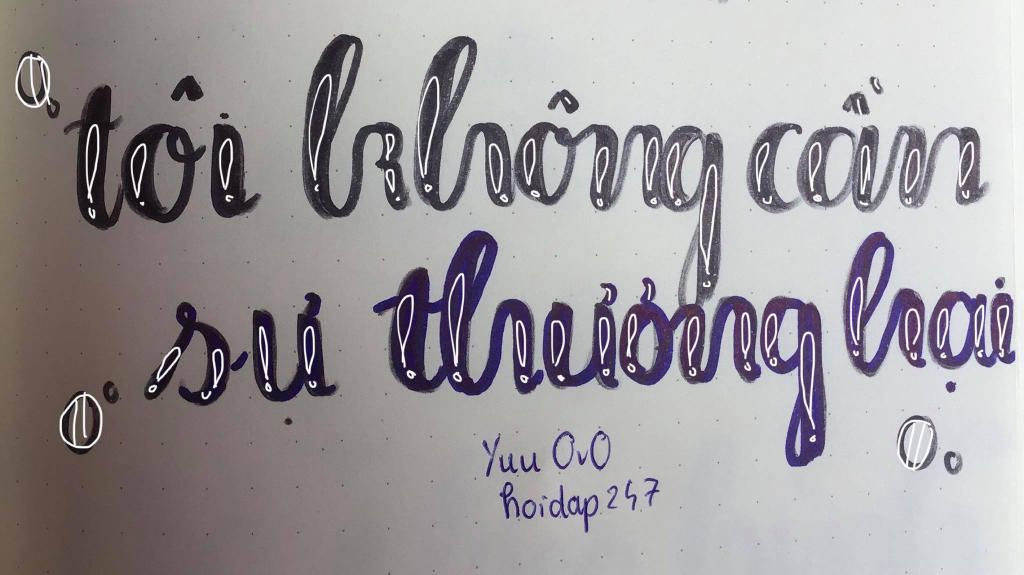 tôi không cần
sự thương hại
Yuu OvO
hoidap247